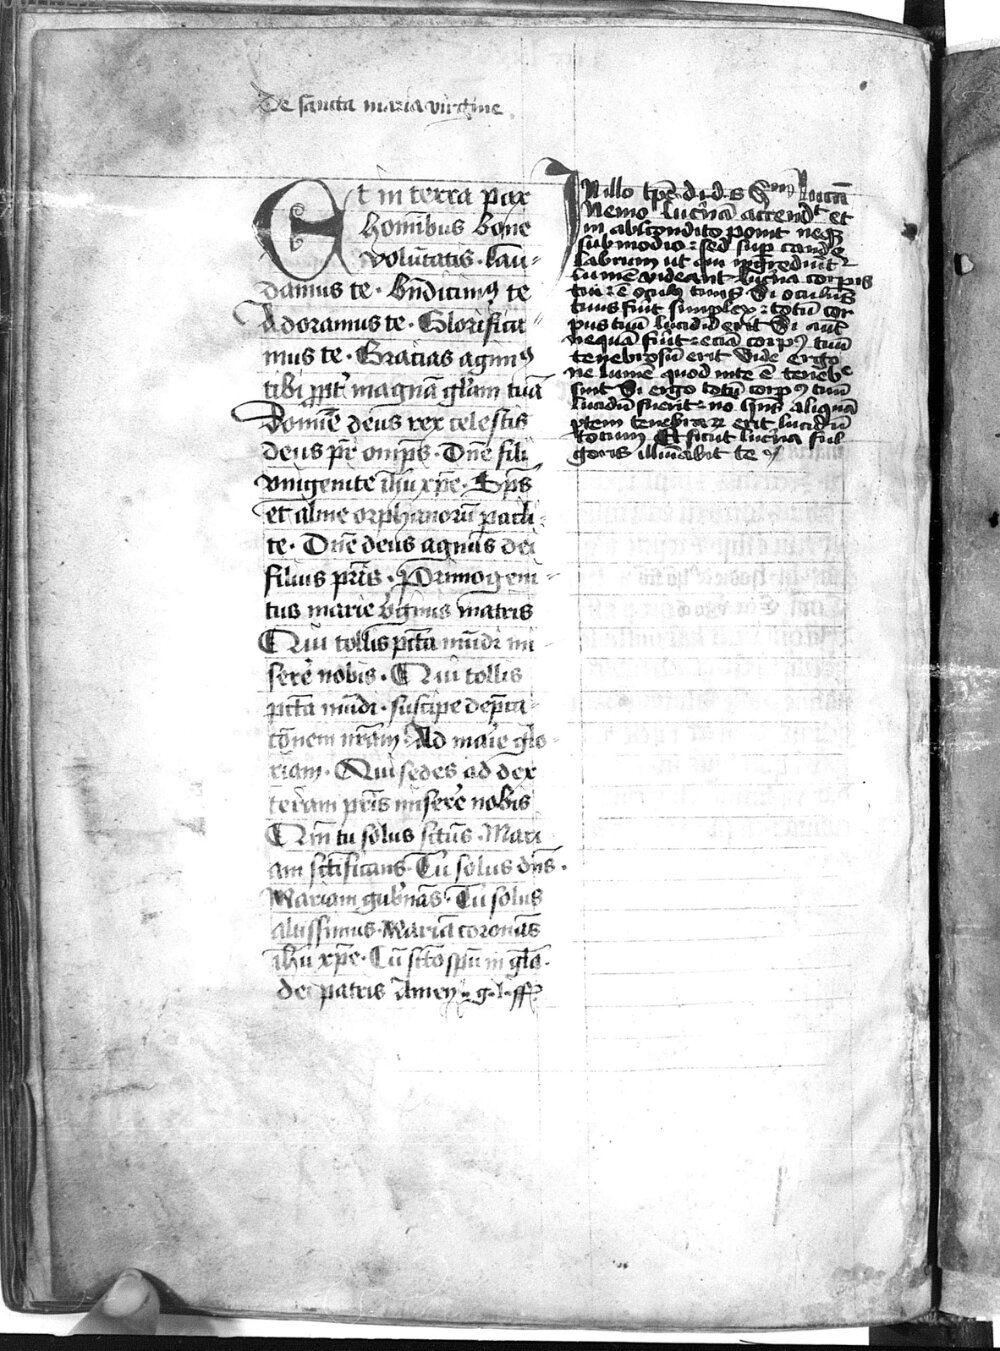 De sancta maria virgine
Et in terra pax
hominibus bone
volūtatis · lau-
damus te · Bn̄dicimꝰ te
Adoramus te · Glorifica
mus te · Gracias agimꝰ
tibi ꝓpt̄ magnā gl̄am tuā
Domīe deus rex celestis
deus pr̄ omp̄s · Dn̄e fili
vnigenite ih̄u xp̄e · Sp̄s
et alme orphanorū paracli-
te · Dn̄e deus agnus dei
filius pr̄is · Primogeni-
tus marie v̓ginis matris
Qui tollis pctā mūdi mi
sere nobis · Qui tollis
pctā mūdi · suscipe dep̄ca-
cōnem nrām · Ad marie glo-
riam · Qui sedes ad dex
teram pr̄is miserē nobis
Qm̄ tu solus sctūs · Mari
am sctīficans · Tu solus dn̄s ·
Mariam gub̓nās · Tu solus
altissimus · Mariā coronās
ih̄u xp̄e · Cū sctō spū in gl̄a ·
dei patris Amen
In illo tp̄e d. i. d. s. Scd̄m Lucā
Nemo lucernā accendit et
in abscondito ponit neqꝫ
sub modio : sed sup cande
labrum ut qui ingrediūt᷑
lumē videant Lucerna corpis
tui ē oculꝰ tuus Si oculus
tuus fuit simplex : totū cor
pus tuū lucidū erit Si aut̄
nequā fuit : eciā corpꝰ tuū
tenebrosū erit Vide ergo
ne lumē quod in te ē teneb̓e
sint Si ergo totū corpꝰ tuū
lucidū fuerit : nō h̄ns aliquā
ptem tenebraꝝ erit lucidū
totum Et sicut lucerna ful
goris illuīabit te